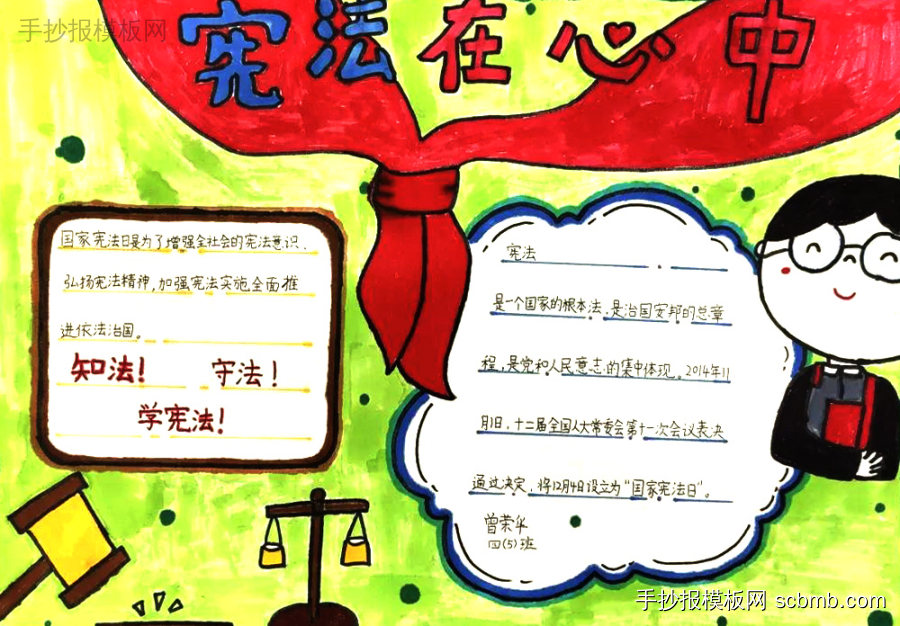 手抄报模板网
宪法在心中
国家宪法日是为了增强全社会的宪法意识.
弘扬宪法精神,加强宪法实施全面推
进依法治国。
知法! 守法!
学宪法!
宪法
是一个国家的根本法,是治国安邦的总章
程,是党和人民意志的集中体现。2014年11
月1日,十二届全国人大常委会第十一次会议表决
通过决定,将12月4日设立为“国家宪法日”。
曾荣华
四(5)班
手抄报模板网 scbmb.com